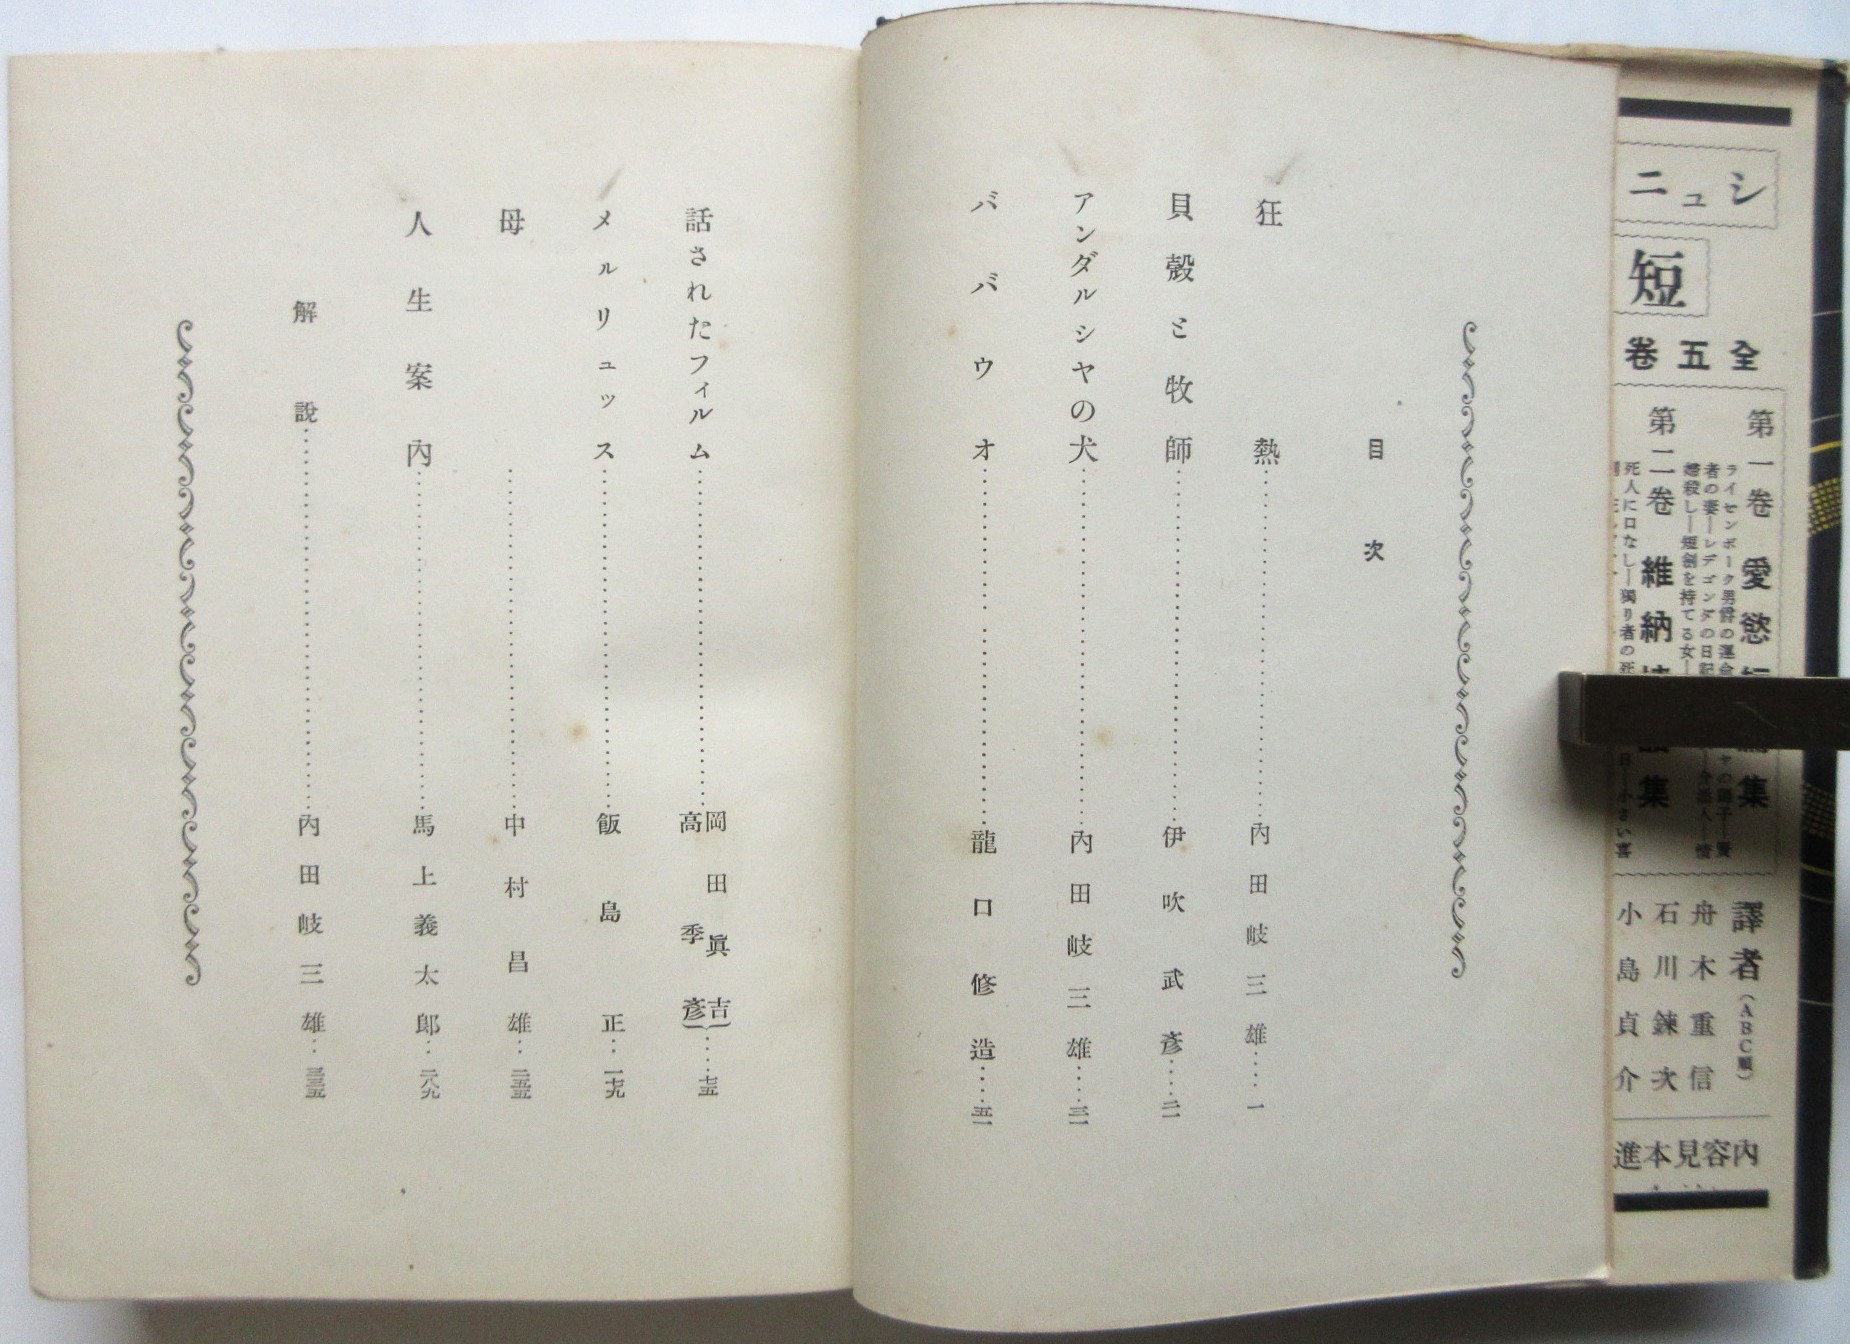 シュニ
短
全五卷
第一卷 愛慾
集
ライゼンボーク男爵の運命
者の妻—レデゴンダの日記
婚殺し—短劍を持てる女—
第二卷 維納
集
死人に口なし—獨り者の死
譯者（ABC順）
舟木重信
石川錬次
小島貞介
內容見本進
目次
狂熱……內田岐三雄……一
貝殼と牧師……伊吹武彥……二一
アンダルシヤの犬……內田岐三雄……三一
ババウオ……龍口修造……五一
話されたフィルム……岡田眞吉 高季彥……七五
メルリュッス……飯島正……一七九
母……中村昌雄……二五五
人生案內……馬上義太郞……二八九
解說……內田岐三雄……三三五